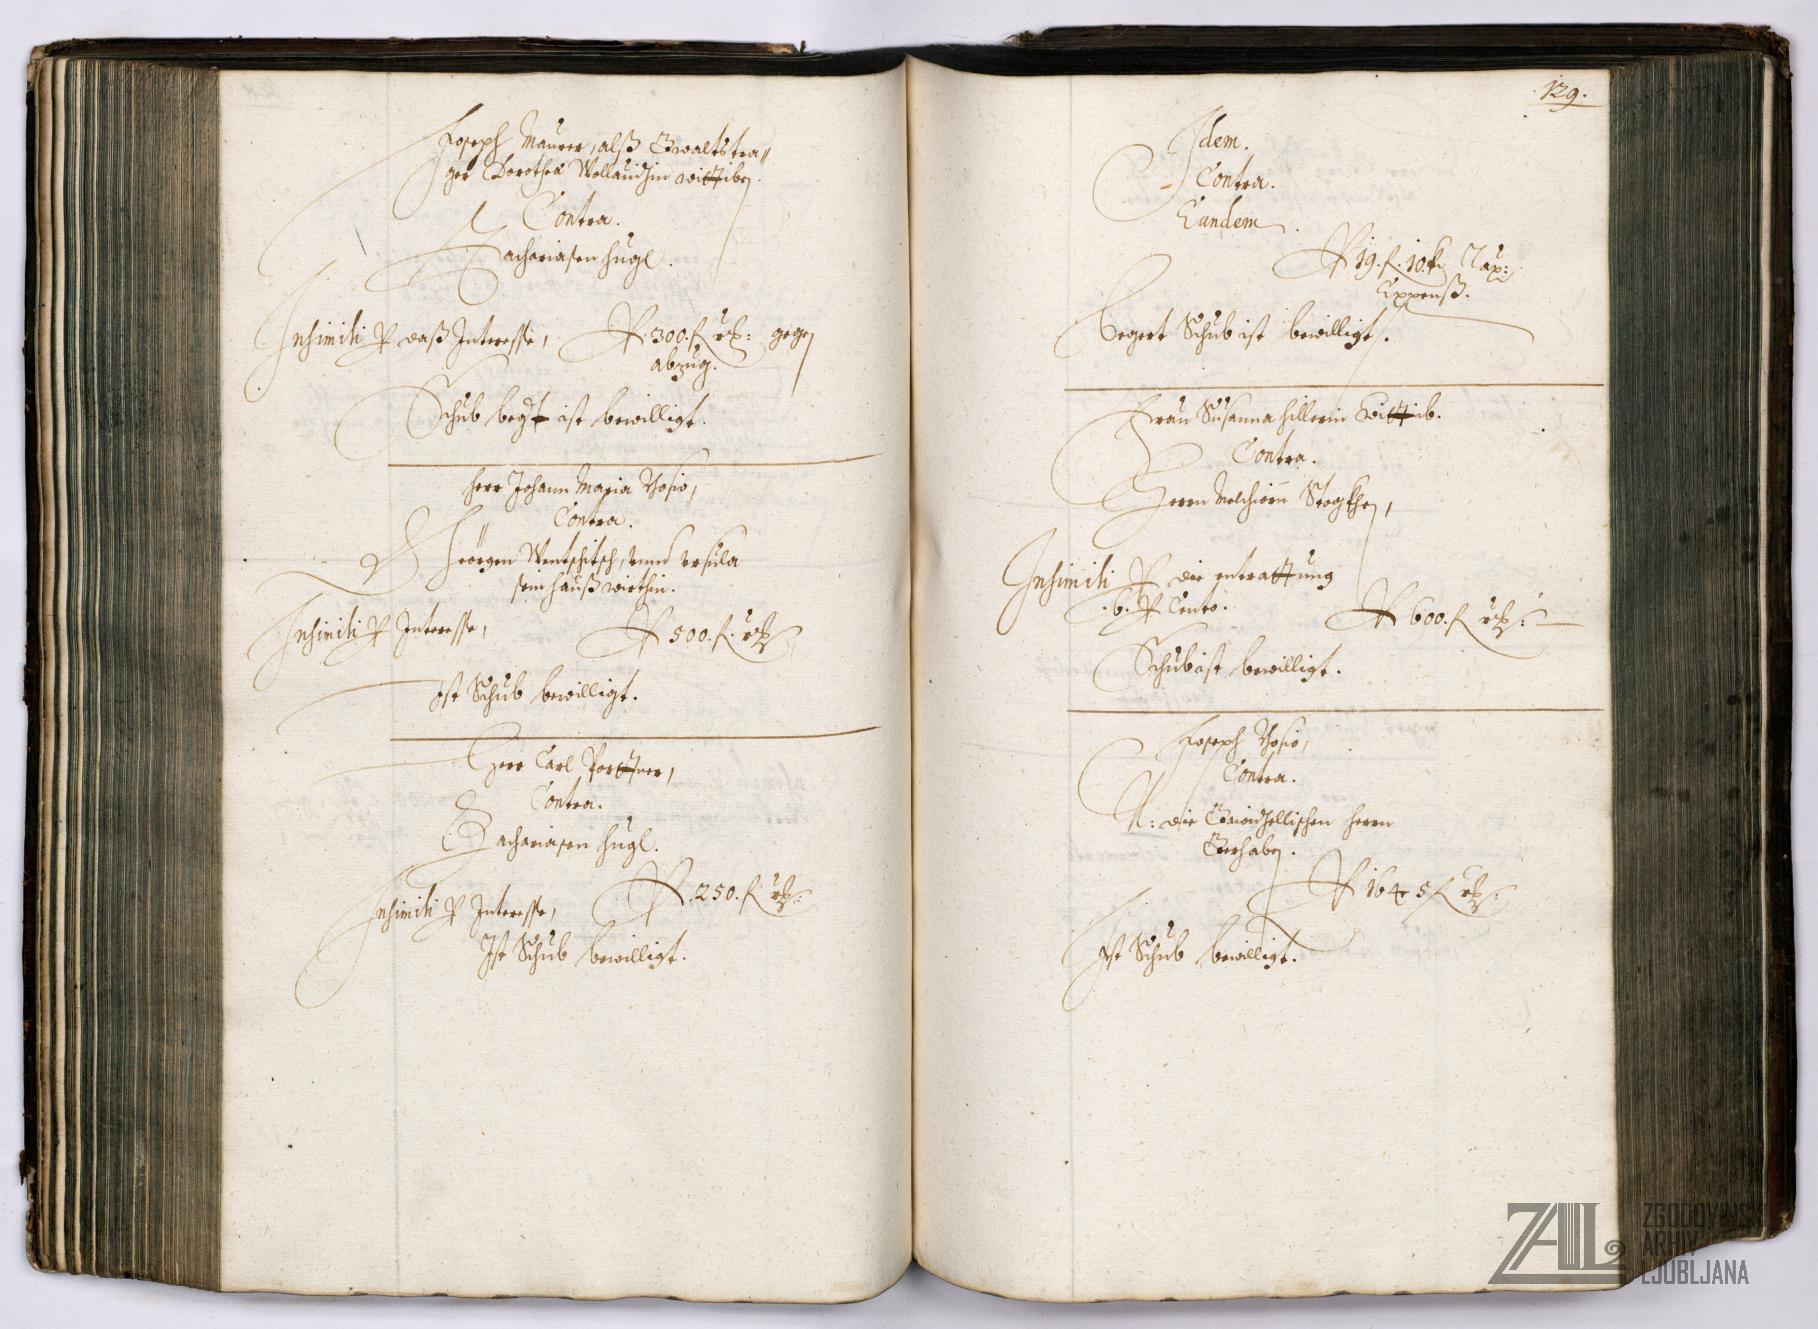 Joseph Maurer, alß Gwaltstra„
ger Dorothea Wollauthin wittiben.
Contra.
Zachariasen Hügl.
Insimili P daß Interesse, P 300. f. rh: gegen
abzug.
Schub begert ist bewilligt.
Herr Johann Maria Thosio,
Contra.
Geörgen Wentschitsch, unnd Ursula
sein haußwirthin.
Insimili P Interesse, P 500. f. rh:
ist Schub bewilligt.
Herr Carl Porttner,
Contra.
Zachariasen Hügl.
Insimili P Interesse, P 250. f. rh:
Ist Schub bewilligt.
129.
Idem.
Contra.
Eundem.
P 19. f. 10. kr Tax:
Expenß.
Begert Schub ist bewilligt.
Frau Susanna Hillerin Wittib.
Contra.
Herrn Melchiorn Stogkhen,
Insimili P die
.6. P Cento. P 600. f rh:
Schub ist bewilligt.
Joseph Thosio,
Contra.
N: die herrn
Gerhaben.
P 1645 f rh:
Ist Schub bewilligt.
ZAL
ZGODOVINSKI
ARHIV
LJUBLJANA